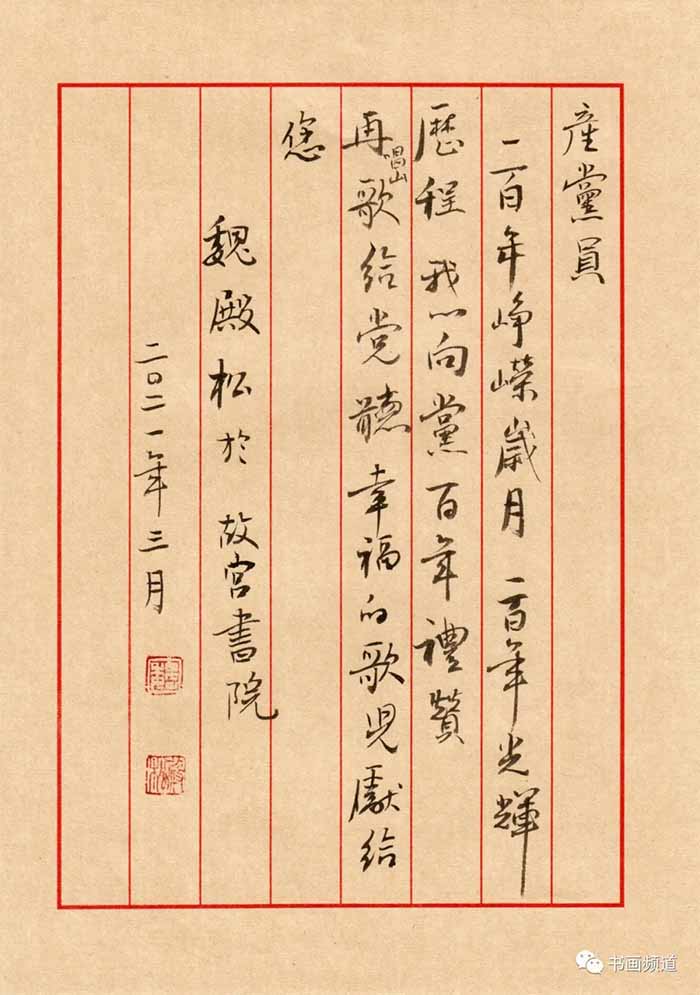 產黨員
一百年崢嶸歲月 一百年光輝
歷程 我心向黨百年禮贊
再唱山歌給党聽幸福的歌兒獻給
您
魏殿松於 故宮書院
二〇二一年三月
书画频道